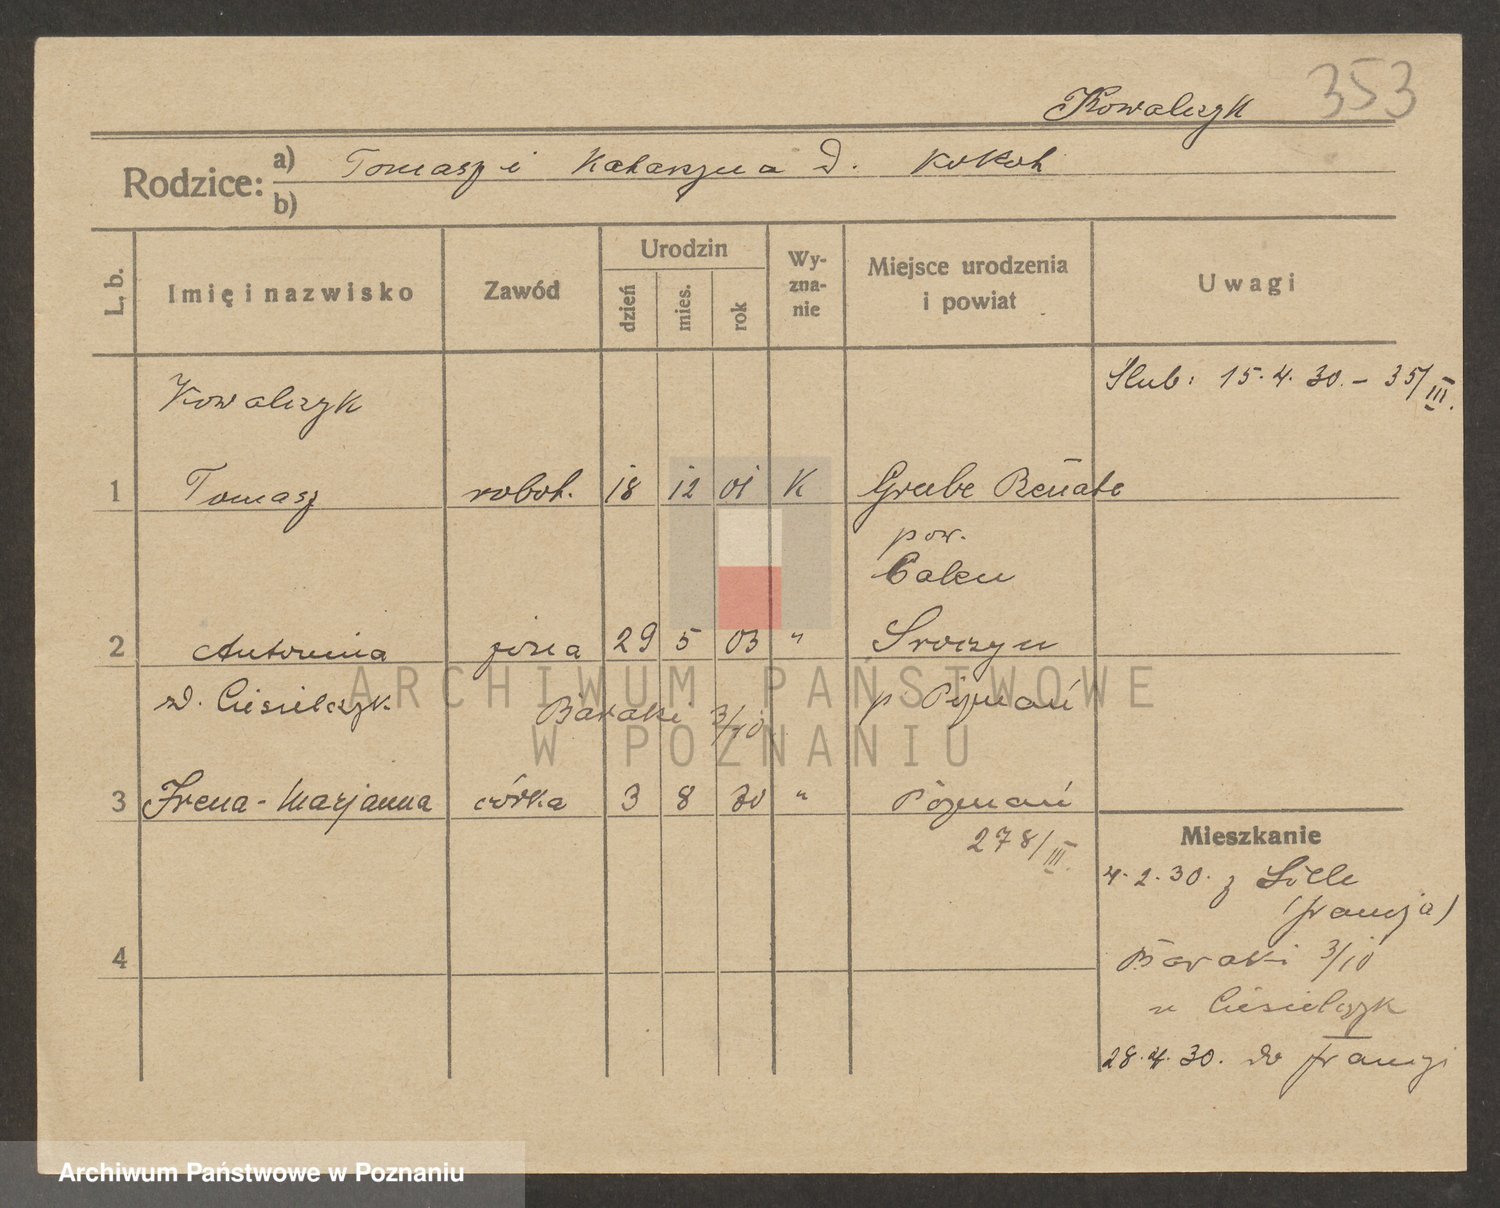 Kowalczyk 353
Rodzice: a) Tomasz i Katarzyna d. Kokot
b)
L. b. Imię i nazwisko Zawód Urodzin dzień mies. rok Wy-zna-nie Miejsce urodzenia i powiat Uwagi
Kowalczyk Ślub: 15.4.30. – 35/III.
1 Tomasz robot. 18 12 01 K Grube Renate
pow.
2 Antonina żona 29 5 03 " Sroczyn
d. Ciesielczyk Baraki 3/10 p. Poznań
3 Irena-Marjanna córka 3 8 30 " Poznań
278/III.
4
Mieszkanie
4.2.30. z Lille
(francja)
Baraki 3/10
u Ciesielczyk
28.4.30. do francji
ARCHIWUM PAŃSTWOWE
W POZNANIU
Archiwum Państwowe w Poznaniu